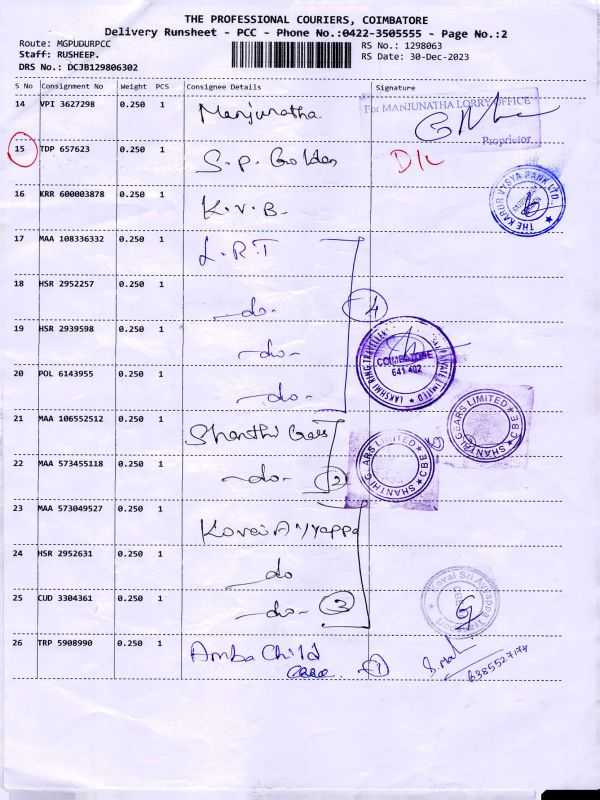 THE PROFESSIONAL COURIERS, COIMBATORE
Delivery Runsheet - PCC - Phone No.:0422-3505555 - Page No.:2
Route: MGPUDURPCC
Staff: RUSHEEP.
DRS No.: DCJB129806302
RS No.: 1298063
RS Date: 30-Dec-2023
S No Consignment No Weight PCS Consignee Details Signature
14 VPI 3627298 0.250 1 Manjunatha
For MANJUNATHA LORRY OFFICE
Proprietor
15 TDP 657623 0.250 1 S.P. Golden D/L
16 KRR 600003878 0.250 1 K.V.B.
THE KARUR VYSYA BANK LTD.
17 MAA 108336332 0.250 1 L.R.T
18 HSR 2952257 0.250 1 -do- 4
19 HSR 2939598 0.250 1 -do-
COIMBATORE
641 402
20 POL 6143955 0.250 1 -do-
21 MAA 106552512 0.250 1 Shanthi Gears
SHANTHI GEARS LIMITED CBE
22 MAA 573455118 0.250 1 -do- 2
SHANTHI GEARS LIMITED CBE
23 MAA 573049527 0.250 1 Kovai Ayyappa
24 HSR 2952631 0.250 1 do
25 CUD 3304361 0.250 1 -do- 3
26 TRP 5908990 0.250 1 Amba Child
Care 1
6385527174